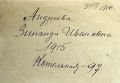 Андреева
Зинаида Ивановна
1915
Котельная - 97